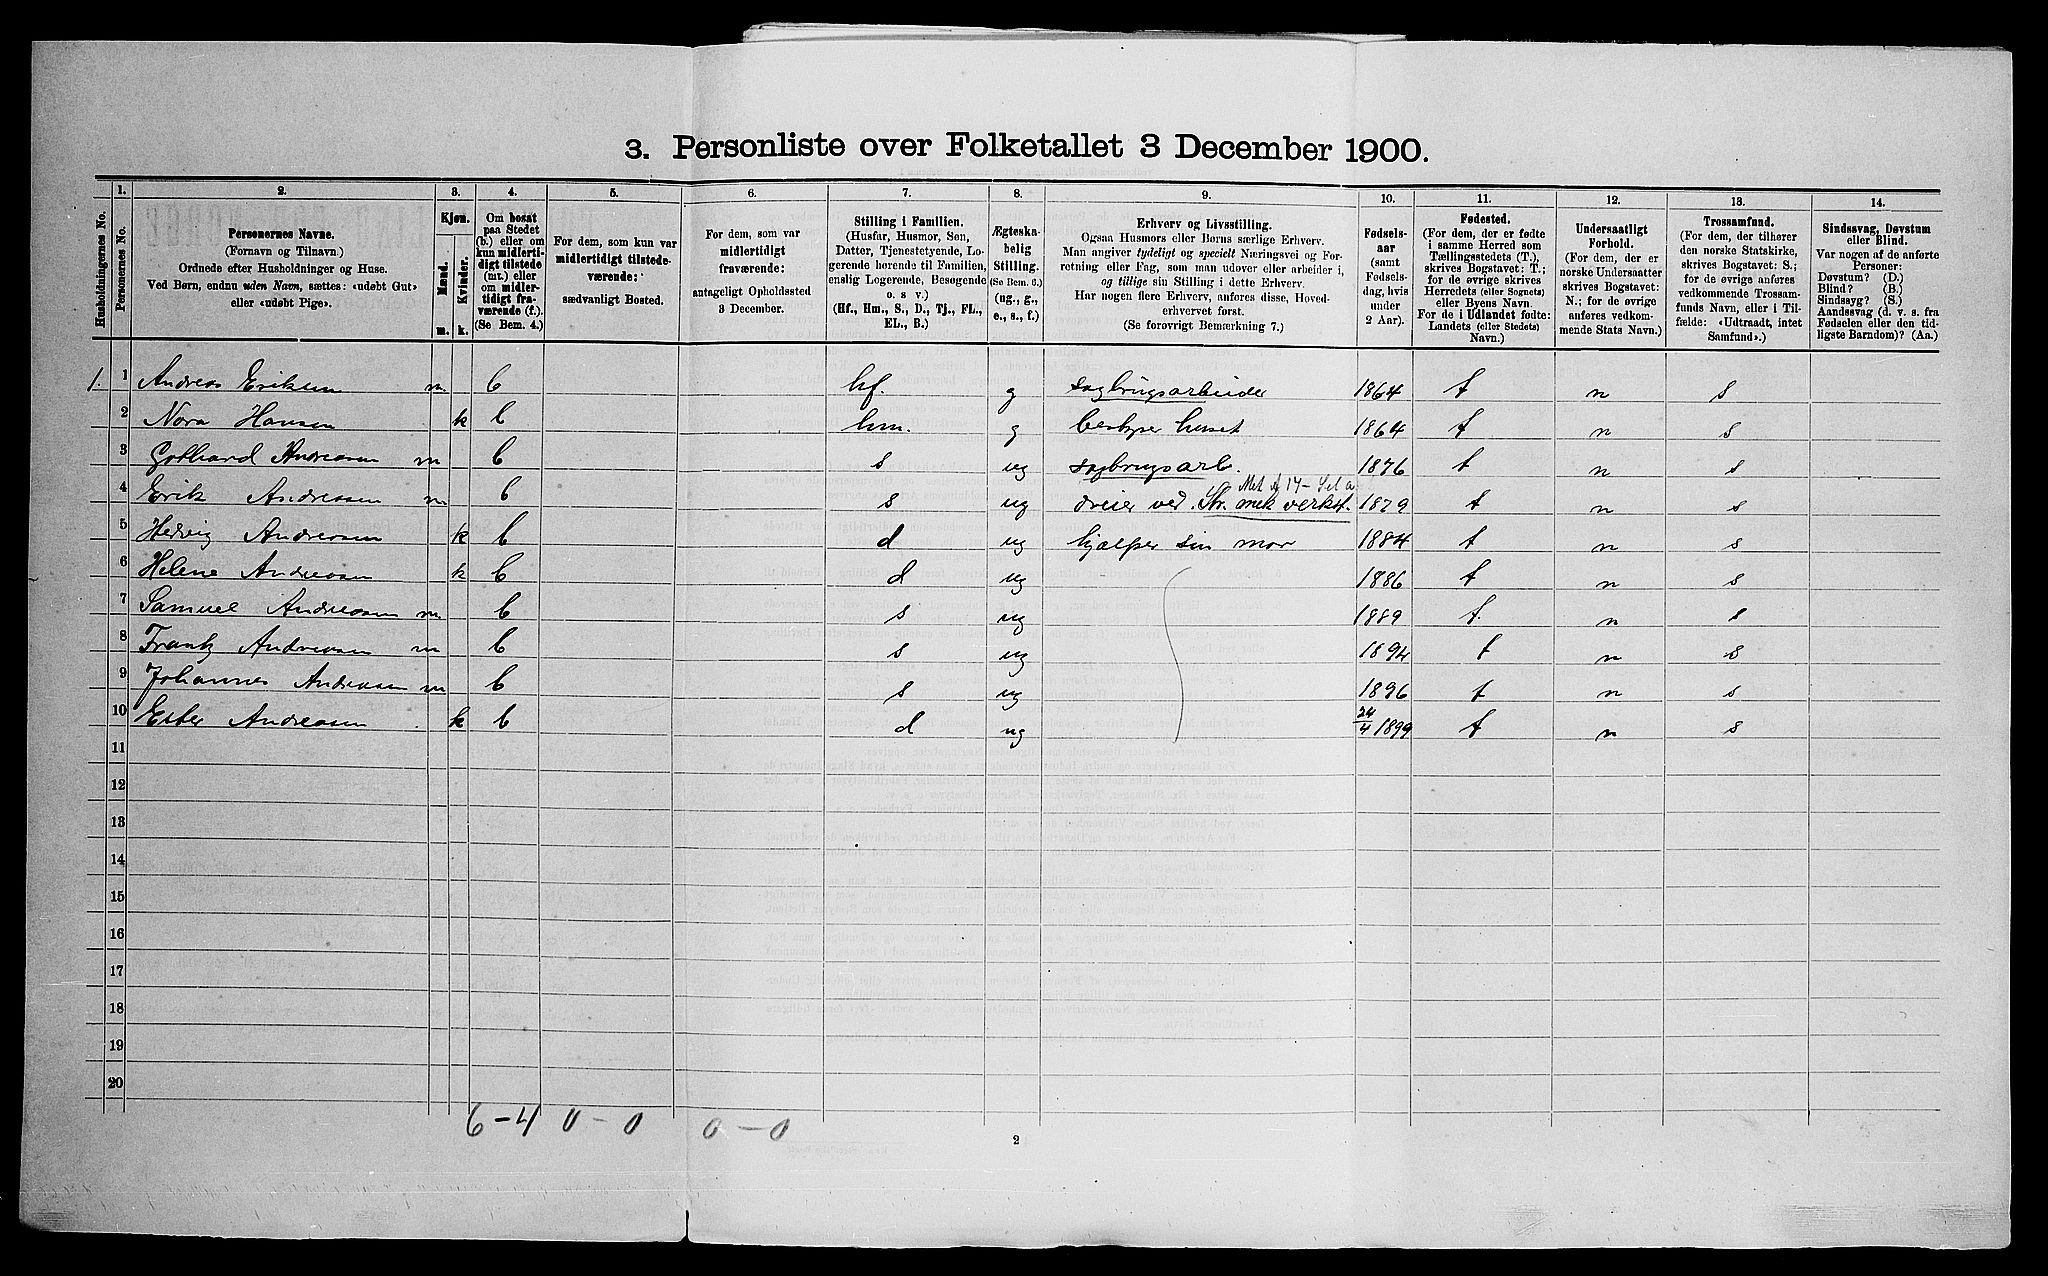 3. Personliste over Folketallet 3 December 1900.
Husholdningernes No.
1.
Personernes No.
2.
Personernes Navne.
(Fornavn og Tilnavn.)
Ordnede efter Husholdninger og Huse.
Ved Børn, endnu uden Navn, sættes: «udøbt Gut»
eller «udøbt Pige».
3.
Kjøn.
Mænd.
m.
Kvinder.
k.
4.
Om bosat
paa Stedet
(b.) eller om
kun midlerti-
digt tilstede
(mt.) eller
om midler-
tidigt fra-
værende (f.).
(Se Bem. 4.)
5.
For dem, som kun var
midlertidigt tilstede-
værende:
sædvanligt Bosted.
6.
For dem, som var
midlertidigt
fraværende:
antageligt Opholdssted
3 December.
7.
Stilling i Familien.
(Husfar, Husmor, Søn,
Datter, Tjenestetyende, Lo-
gerende hørende til Familien,
enslig Logerende, Besøgende
o. s v.)
(Hf., Hm., S., D., Tj., FL.,
EL., B.)
8.
Ægteska-
belig
Stilling.
(Se Bem. 6.)
(ug., g.,
e., s., f.)
9.
Erhverv og Livsstilling.
Ogsaa Husmors eller Børns særlige Erhverv.
Man angiver tydeligt og specielt Næringsvei og For-
retning eller Fag, som man udover eller arbeider i,
og tillige sin Stilling i dette Erhverv.
Har nogen flere Erhverv, anføres disse, Hoved-
erhvervet først.
(Se forøvrigt Bemærkning 7.)
10.
Fødsels-
aar
(samt
Fødsels-
dag, hvis
under
2 Aar).
11.
Fødested.
(For dem, der er fødte
i samme Herred som
Tællingsstedets (T.),
skrives Bogstavet: T.;
for de øvrige skrives
Herredets (eller Sognets)
eller Byens Navn.
For de i Udlandet fødte:
Landets (eller Stedets)
Navn.)
12.
Undersaatligt
Forhold.
(For dem, der er
norske Undersaatter
skrives Bogstavet:
N.; for de øvrige
anføres vedkom-
mende Stats Navn.)
13.
Trossamfund.
(For dem, der tilhører
den norske Statskirke,
skrives Bogstavet: S.;
for de øvrige anføres
vedkommende Trossam-
funds Navn, eller i Til-
fælde: «Udtraadt, intet
Samfund».)
14.
Sindssvag, Døvstum
eller Blind.
Var nogen af de anførte
Personer:
Døvstum? (D.)
Blind? (B.)
Sindssyg? (S.)
Aandssvag (d. v. s. fra
Fødselen eller den tid-
ligste Barndom)? (Aa.)
1. 1 Andreas Eriksen m. b hf. g sagbrugsarbeider 1864 t n s
2 Nora Hansen k b hm. g bestyrer huset 1864 t n s
3 Gothard Andreasen m b s ug sagbrugsarb. 1876 t n s
Met
4 Erik Andreasen m b s ug dreier ved Str. mek verkst. 1879 t n s
5 Hedvig Andreasen k b d ug hjælper sin mor 1884 t n s
6 Helene Andreasen k b d ug 1886 t n s
7 Samuel Andreasen m. b s ug 1889 t. n s
8 Frantz Andreasen m b s ug 1894 t n s
9 Johannes Andreasen m b s ug 1896 t n s
10 Ester Andreasen k b d ug 24/4 1899 t n s
11
12
13
14
15
16
17
18
19
20
6-4 0-0 0-0
2